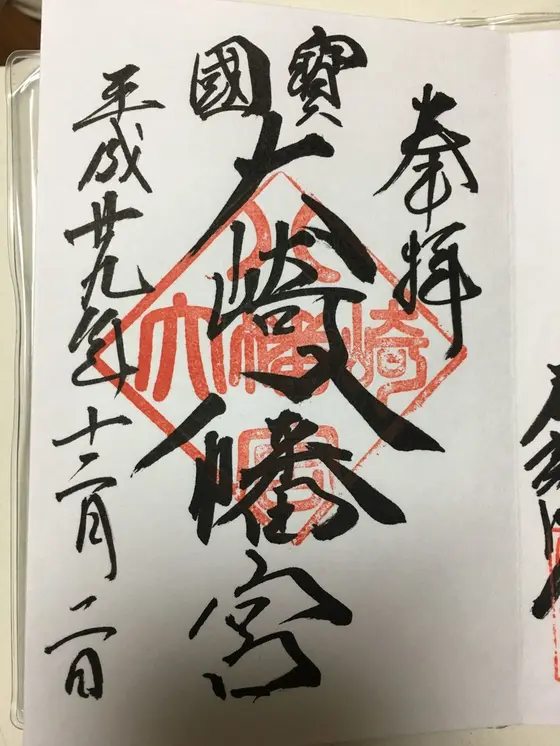 奉拝
國寶
大崎八幡宮
平成廿九年十二月二日
八
大幡崎
宮